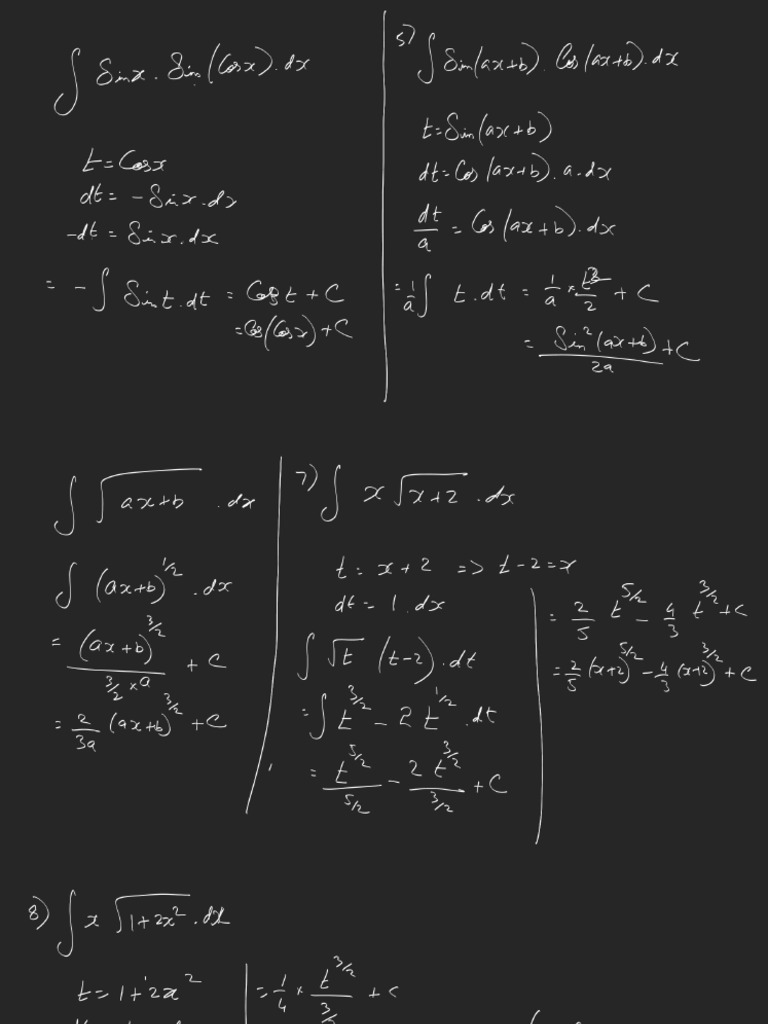 ∫ Sinx . Sin(Cosx) . dx
t = Cosx
dt = -Sinx.dx
-dt = Sinx.dx
= - ∫ Sint.dt = Cost + C
= Cos(Cosx) + C
5) ∫ Sin(ax+b) . Cos(ax+b).dx
t = Sin(ax+b)
dt = Cos(ax+b).a.dx
dt/a = Cos(ax+b).dx
= 1/a ∫ t.dt = 1/a × t²/2 + C
= Sin²(ax+b)/2a + C
∫ √(ax+b) . dx
∫ (ax+b)^(1/2) . dx
= (ax+b)^(3/2)/(3/2 × a) + C
= 2/3a (ax+b)^(3/2) + C
7) ∫ x √(x+2) . dx
t = x + 2 => t-2 = x
dt = 1.dx
∫ √t (t-2).dt
= ∫ t^(3/2) - 2t^(1/2) .dt
= t^(5/2)/(5/2) - 2t^(3/2)/(3/2) + C
= 2/5 t^(5/2) - 4/3 t^(3/2) + C
= 2/5 (x+2)^(5/2) - 4/3 (x+2)^(3/2) + C
8) ∫ x √(1+2x²) . dx
t = 1+2x²
= 1/4 × t^(3/2)/(3/2) + C